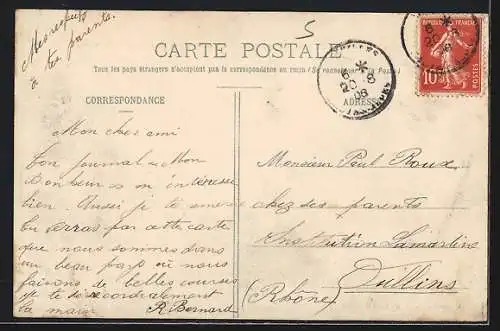 Mes respects
à tes parents.
5
CARTE POSTALE
Tous les pays étrangers n'acceptent pas la correspondance au recto (Se renseigner à la Poste)
CORRESPONDANCE
ADRESSE
6 *
20 -8
08
RÉPUBLIQUE FRANÇAISE
10
POSTES
Mon cher ami
Ton journal « Mon
Bonheur » m'intéresse
bien. Aussi je te
tu verras par cette carte
que nous sommes dans
un beau pays où nous
faisons de belles courses
je te serre cordialement
la main R. Bernard
Monsieur Paul Roux
chez ses parents
Institution Lamartine
Oullins
(Rhône)